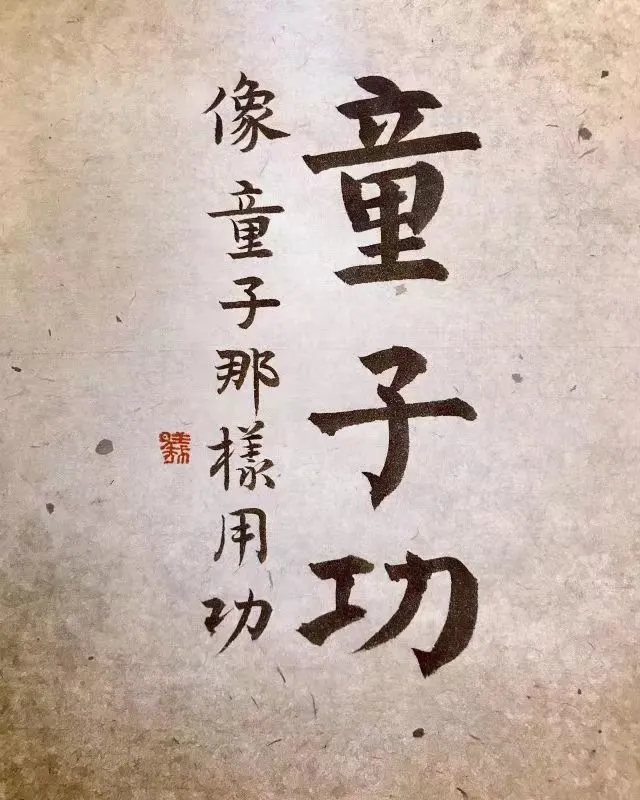 童子功
像童子那樣用功